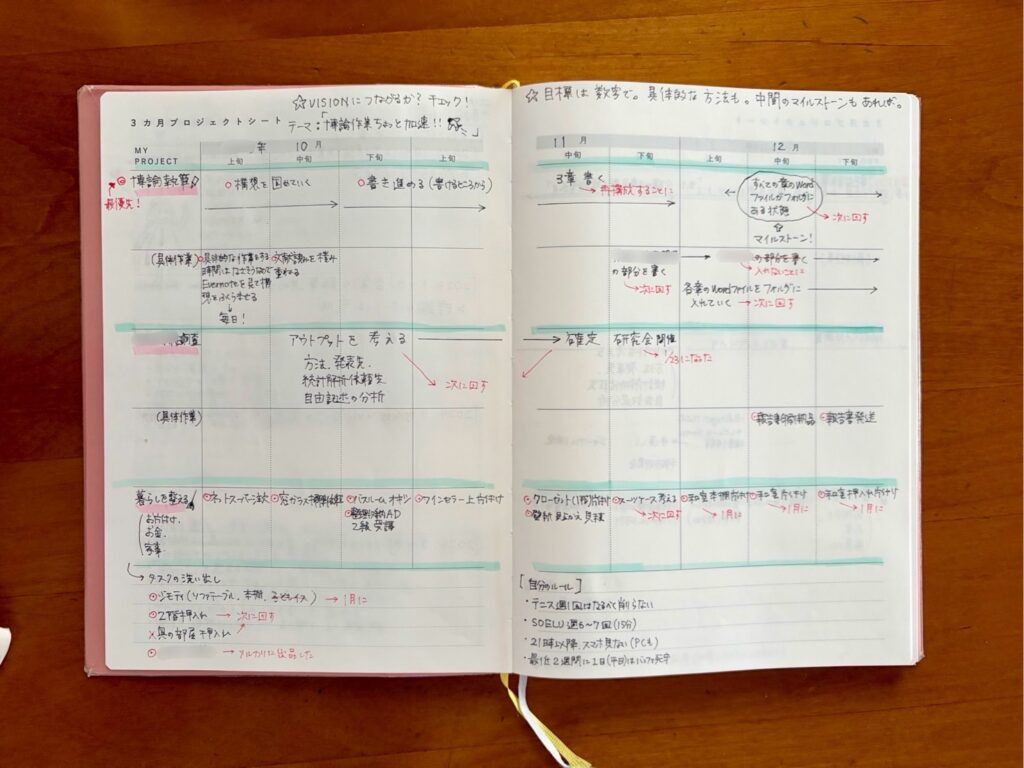 ☆VISIONにつながるか? チェック!
3カ月プロジェクトシート
テーマ:「博論作業ちょっと加速!!」
MY PROJECT
年 10月
上旬 中旬 下旬 上旬
博論執筆
最優先!
構想を固めていく
書き進める(書けるところから)
(具体作業)
具体的な作業をする
時間はなさそうなので
Evernoteを見て構
想をふくらませる
↓
毎日!
文献読みを積み
重ねる
調査
アウトプットを考える
方法、発表先、
統計解析依頼先
自由記述の分析
次に回す
(具体作業)
暮らしを整える
お片付け、
お金、
家事
ネットスーパー注文
窓ガラス
バスルーム、オキシ
整理収納AD
2級 受講
ワインセラー上片付け
→タスクの洗い出し
ジモティ(ソファテーブル、本棚、子どもイス) →1月に
2階押入れ → 次に回す
×奥の部屋押入れ
→メルカリに出品した
☆目標は数字で。具体的な方法も。中間のマイルストーンもあれば。
11月
12月
中旬 下旬 上旬 中旬 下旬
3章 書く
→再構成することに
すべての章のWord
ファイルがフォルダに
ある状態
→次に回す
マイルストーン!
の部分を書く
→次に回す
の部分を書く
入れないことに
各章のWordファイルをフォルダに
入れていく →次に回す
→確定
研究会 開催
→1/23になった
報告書印刷納品
報告書発送
クローゼット(1階)片付け
スーツケース考える
→次に回す
和室本棚片付け
→1月に
和室片付け
→1月に
和室押入れ片付け
→1月に
[自分のルール]
・テニス週1回はなるべく削らない
・SOELU週6~7回(15分)
・21時以降、スマホ見ない(PCも)
・最低2週間に1日(平日)はバッファ死守